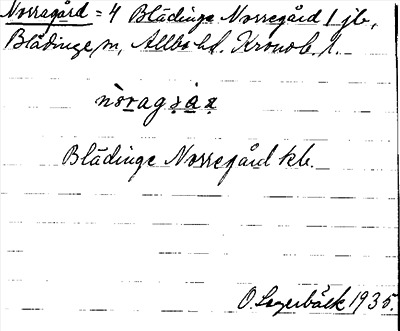 Norragård = 4 Blädinge Norregård 1 jb,
Blädinge sn, Allbo hd. Kronob. l.
Blädinge Norregård kb.
O. Lagerbäck 1935.